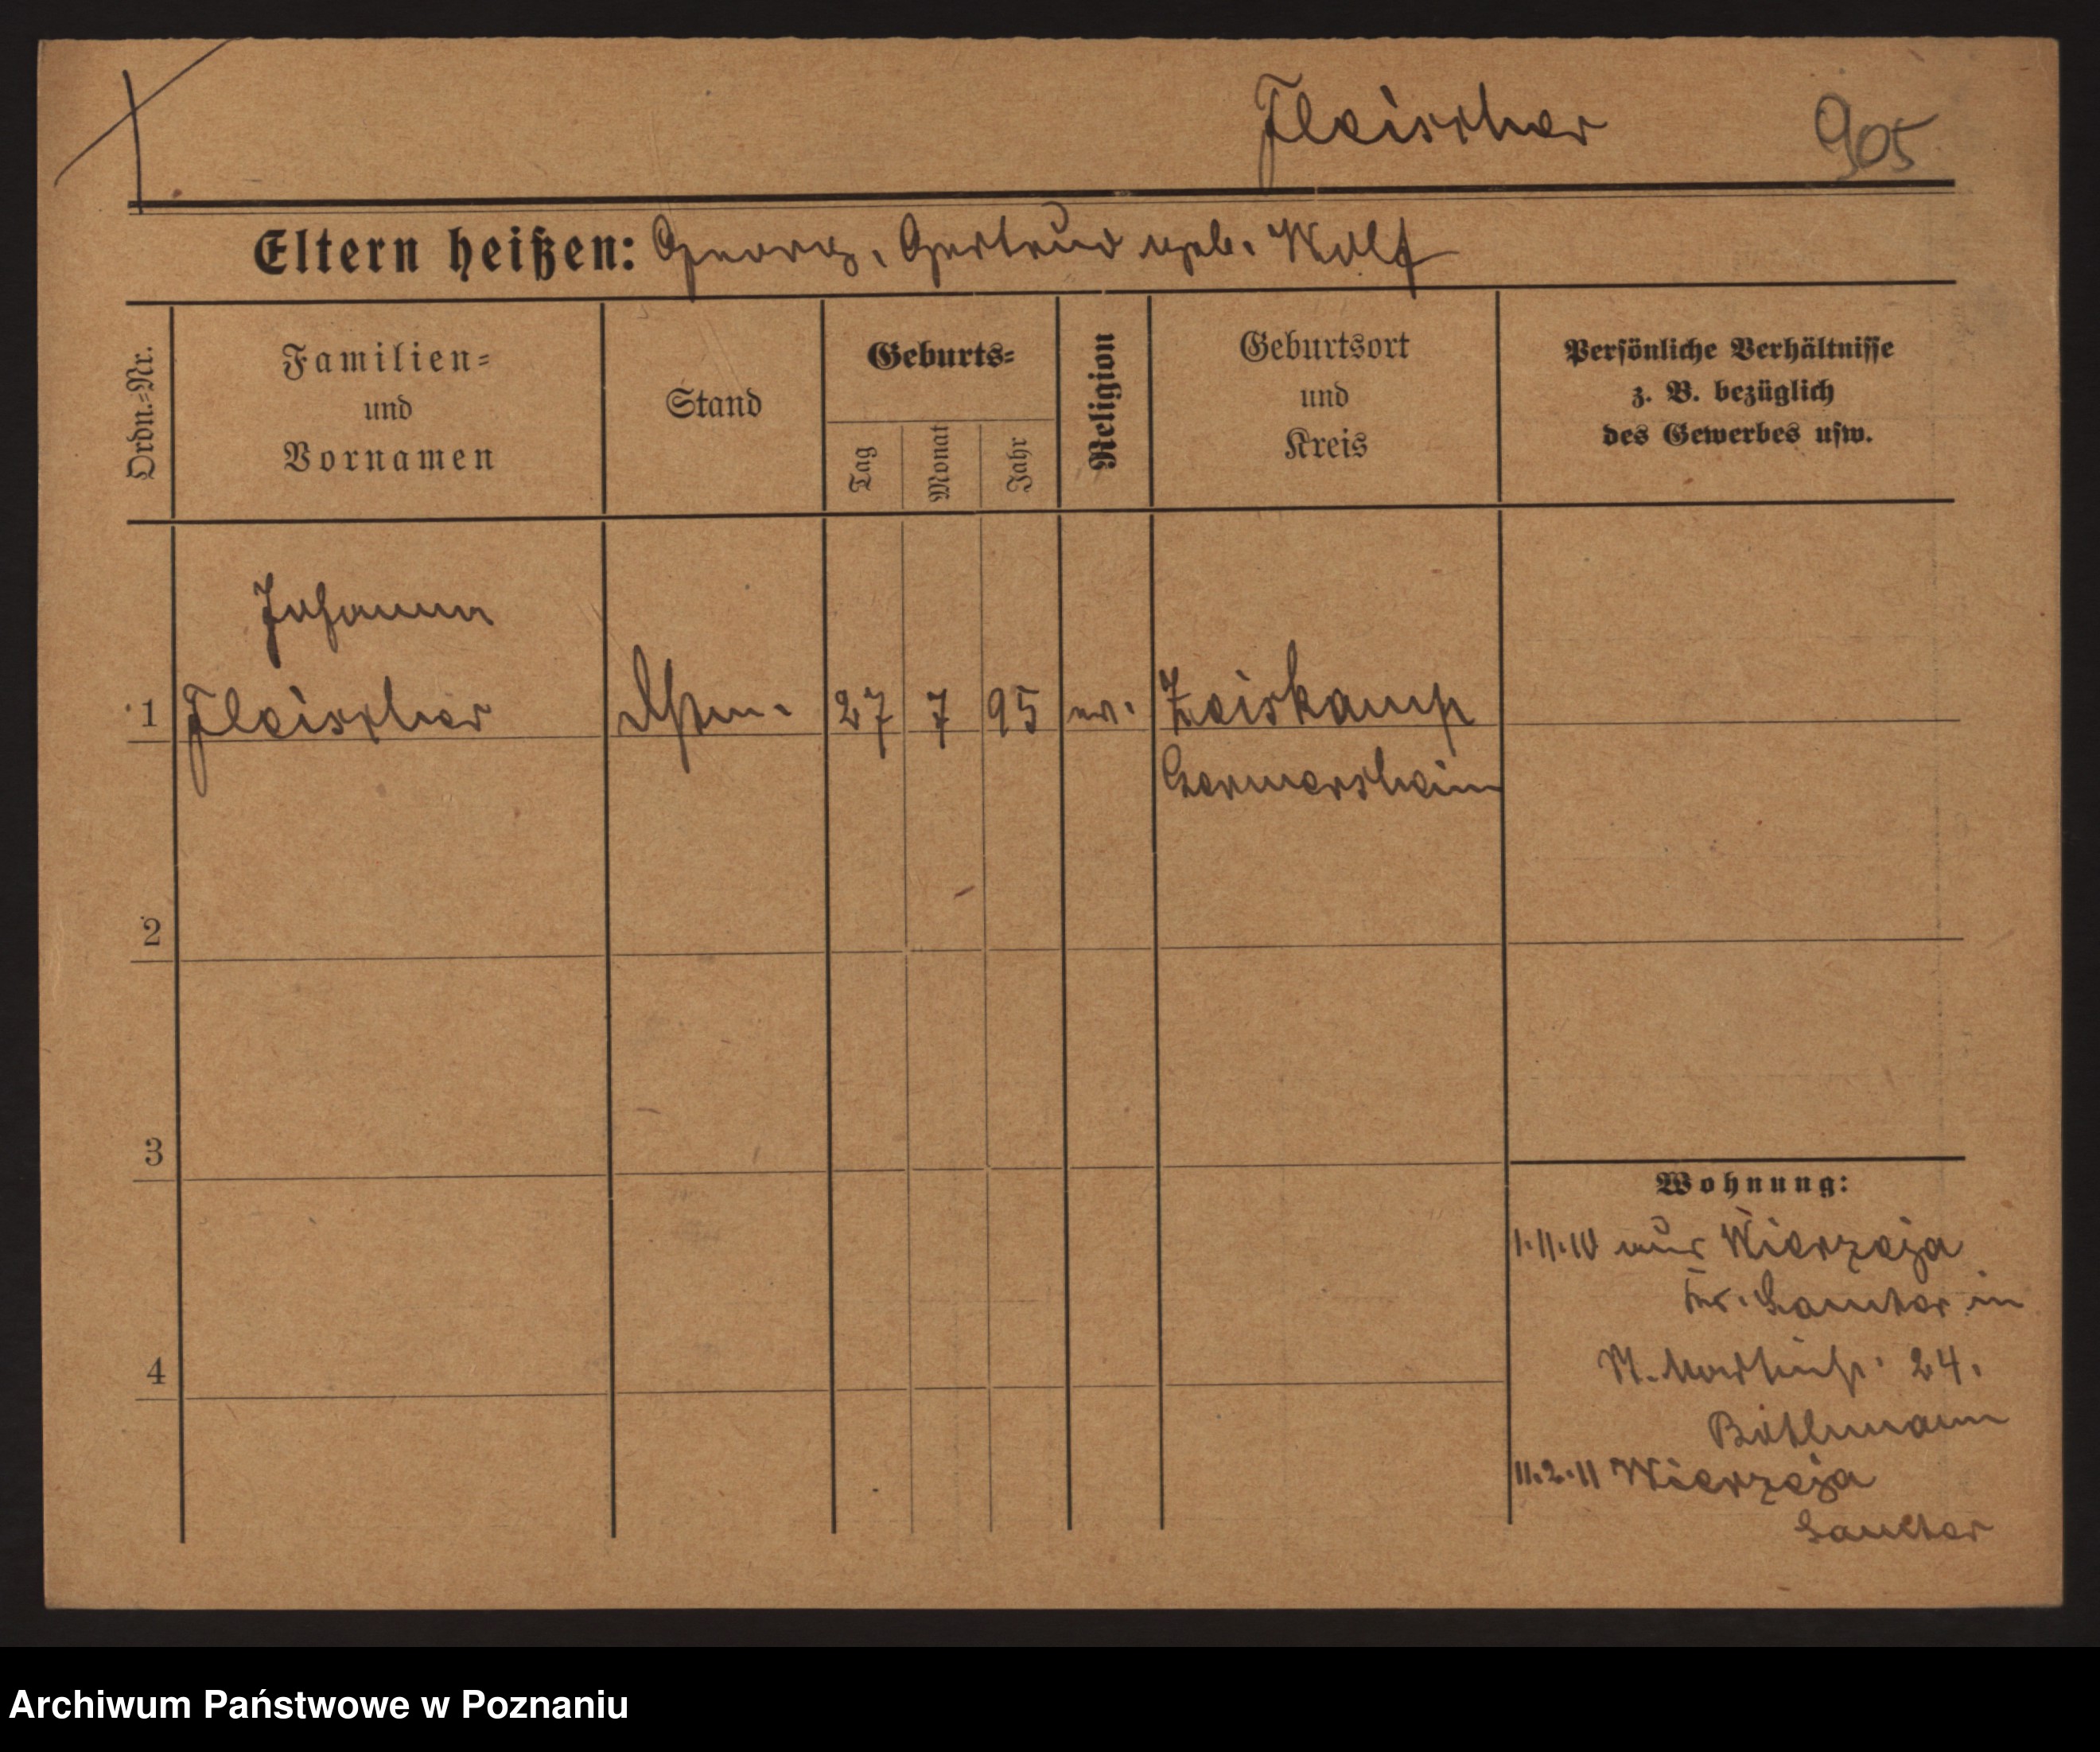 Fleischer 905
Eltern heißen: Georg, Gertrud geb. Wolf
Ordn.=Nr.
Familien=
und
Vornamen
Stand
Geburts=
Tag
Monat
Jahr
Religion
Geburtsort
und
Kreis
Persönliche Verhältnisse
z. B. bezüglich
des Gewerbes usw.
Johann
1 Fleischer 27 7 95 ev. Zeiskamp
Germersheim
2
3
4
Wohnung:
1.11.10 aus Wierzeja
Kr. Samter in
St. Martinstr. 24.
11.2.11 Wierzeja
Samter
Archiwum Państwowe w Poznaniu